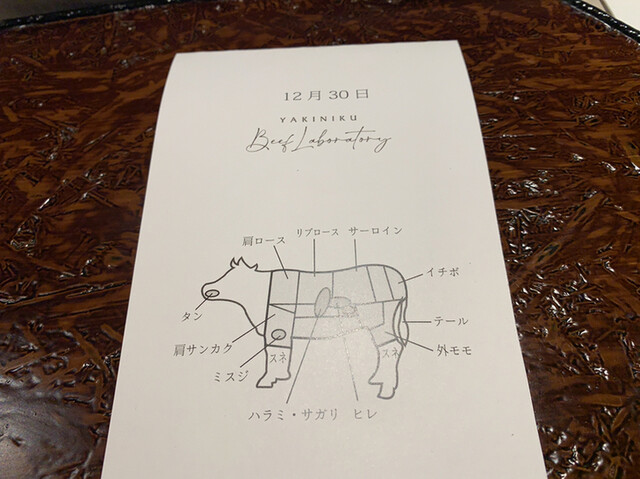 12月30日
YAKINIKU
Beef Laboratory
肩ロース リブロース サーロイン
イチボ
タン
テール
肩サンカク
スネ スネ 外モモ
ミスジ
ハラミ・サガリ ヒレ